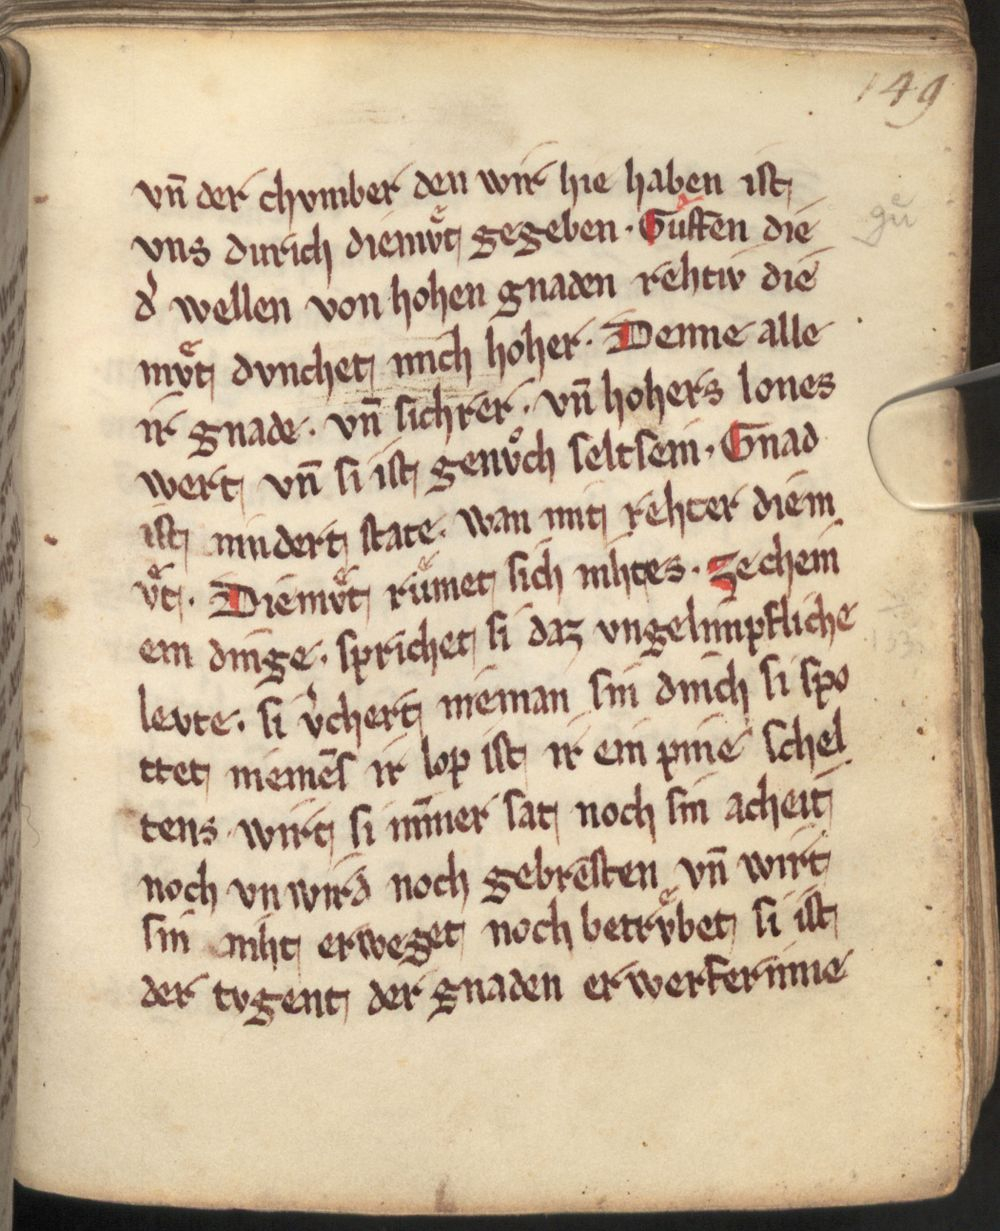 149
vn̄ der chvmber den wir hie haben ist
vns durich diemvͤt gegeben · Guften die
guͤ
d̾ wellen von hohen gnaden rehtiv die
mvͤt dvnchet mich hoher · Denne alle
ir gnade · vn̄ sichrer · vn̄ hohers lones
wert vn̄ si ist genvͦch seltsein · Gnad
ist mindert state · wan mit rehter diem
vͤt · Diemvͤt ruͤmet sich nihtes · zechein
ein dinge · sprichet si daz vngelinpfliche
levte · si v̾chert nieman sin dinch si spo
ttet niemēs ir lop ist ir ein pine schel
tens wirt si im̄er sat noch sin acheit
noch vn wird noch gebrēsten vn̄ wirt
sin niht erweget noch betrvͤbet si ist
der tvgent der gnaden erwerferinne